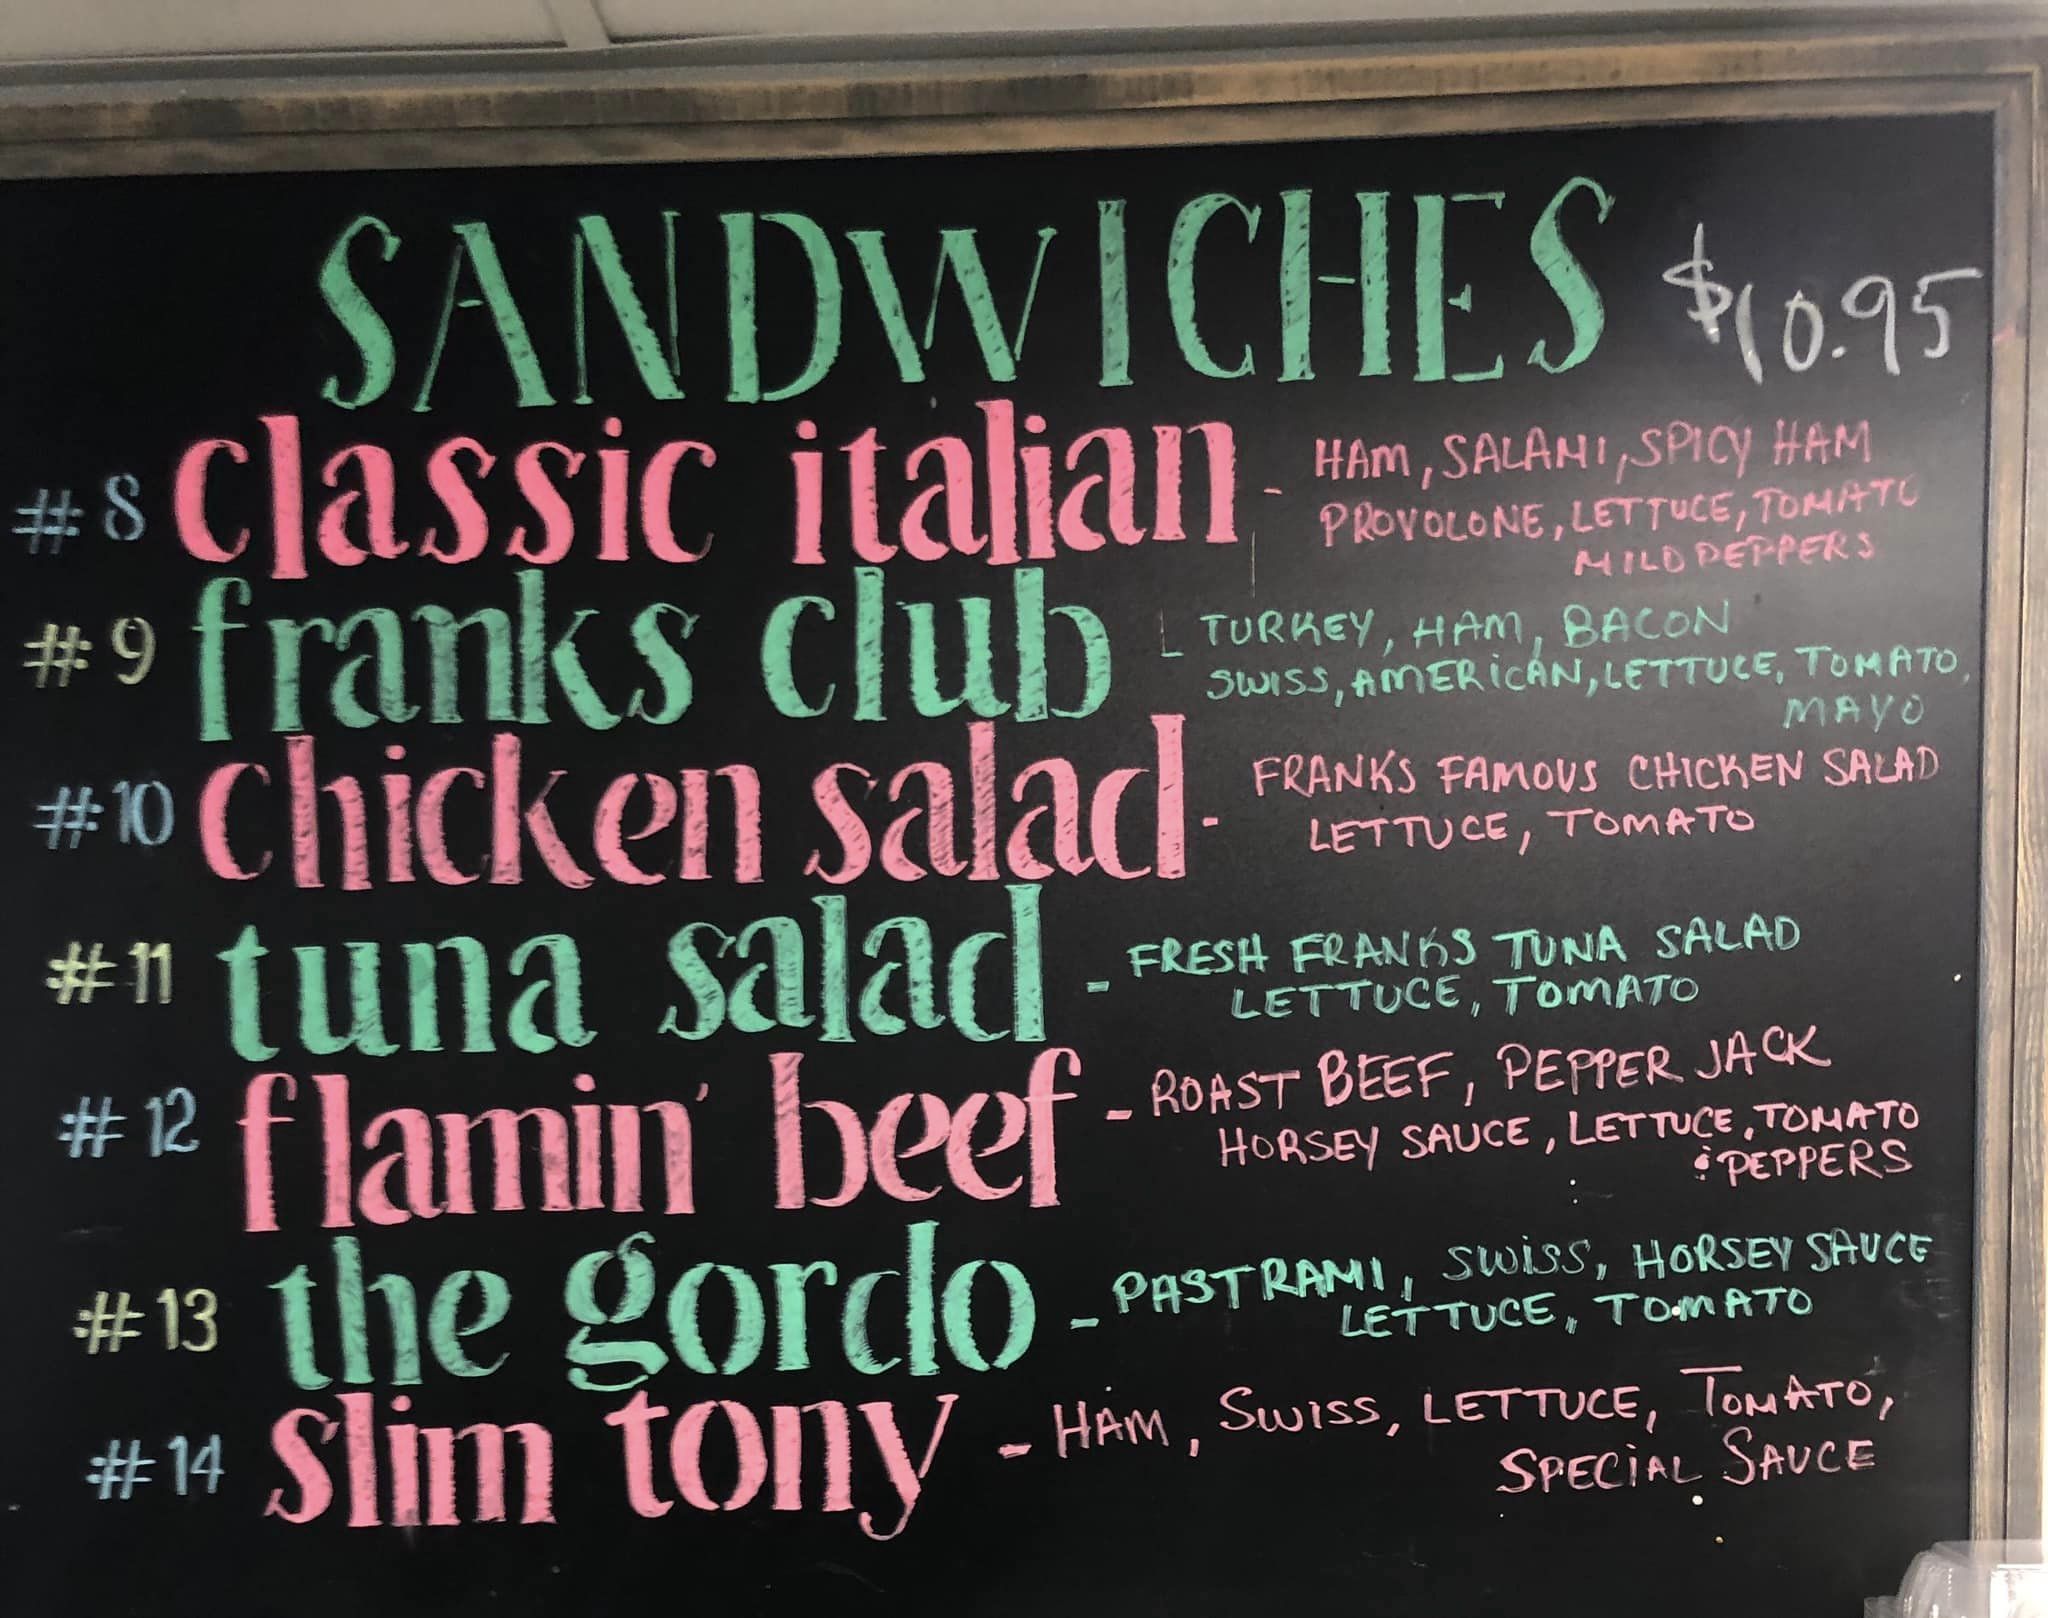 SANDWICHES $10.95
#8 classic italian - HAM, SALAMI, SPICY HAM
PROVOLONE, LETTUCE, TOMATO
MILD PEPPERS
#9 franks club - TURKEY, HAM, BACON
SWISS, AMERICAN, LETTUCE, TOMATO,
MAYO
#10 chicken salad - FRANKS FAMOUS CHICKEN SALAD
LETTUCE, TOMATO
#11 tuna salad - FRESH FRANKS TUNA SALAD
LETTUCE, TOMATO
#12 flamin' beef - ROAST BEEF, PEPPER JACK
HORSEY SAUCE, LETTUCE, TOMATO
& PEPPERS
#13 the gordo - PASTRAMI, SWISS, HORSEY SAUCE
LETTUCE, TOMATO
#14 slim tony - HAM, SWISS, LETTUCE, TOMATO,
SPECIAL SAUCE